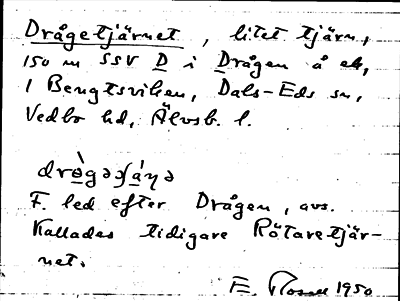 Drågetjärnet, litet tjärn,
150 m SSV D i Drågen å ek,
1 Bengtsviken, Dals-Eds sn,
Vedbo hd, Älvsb. l.
F. led efter Drågen, avs.
Kallades tidigare Rötaretjär-
net.
E. 1950